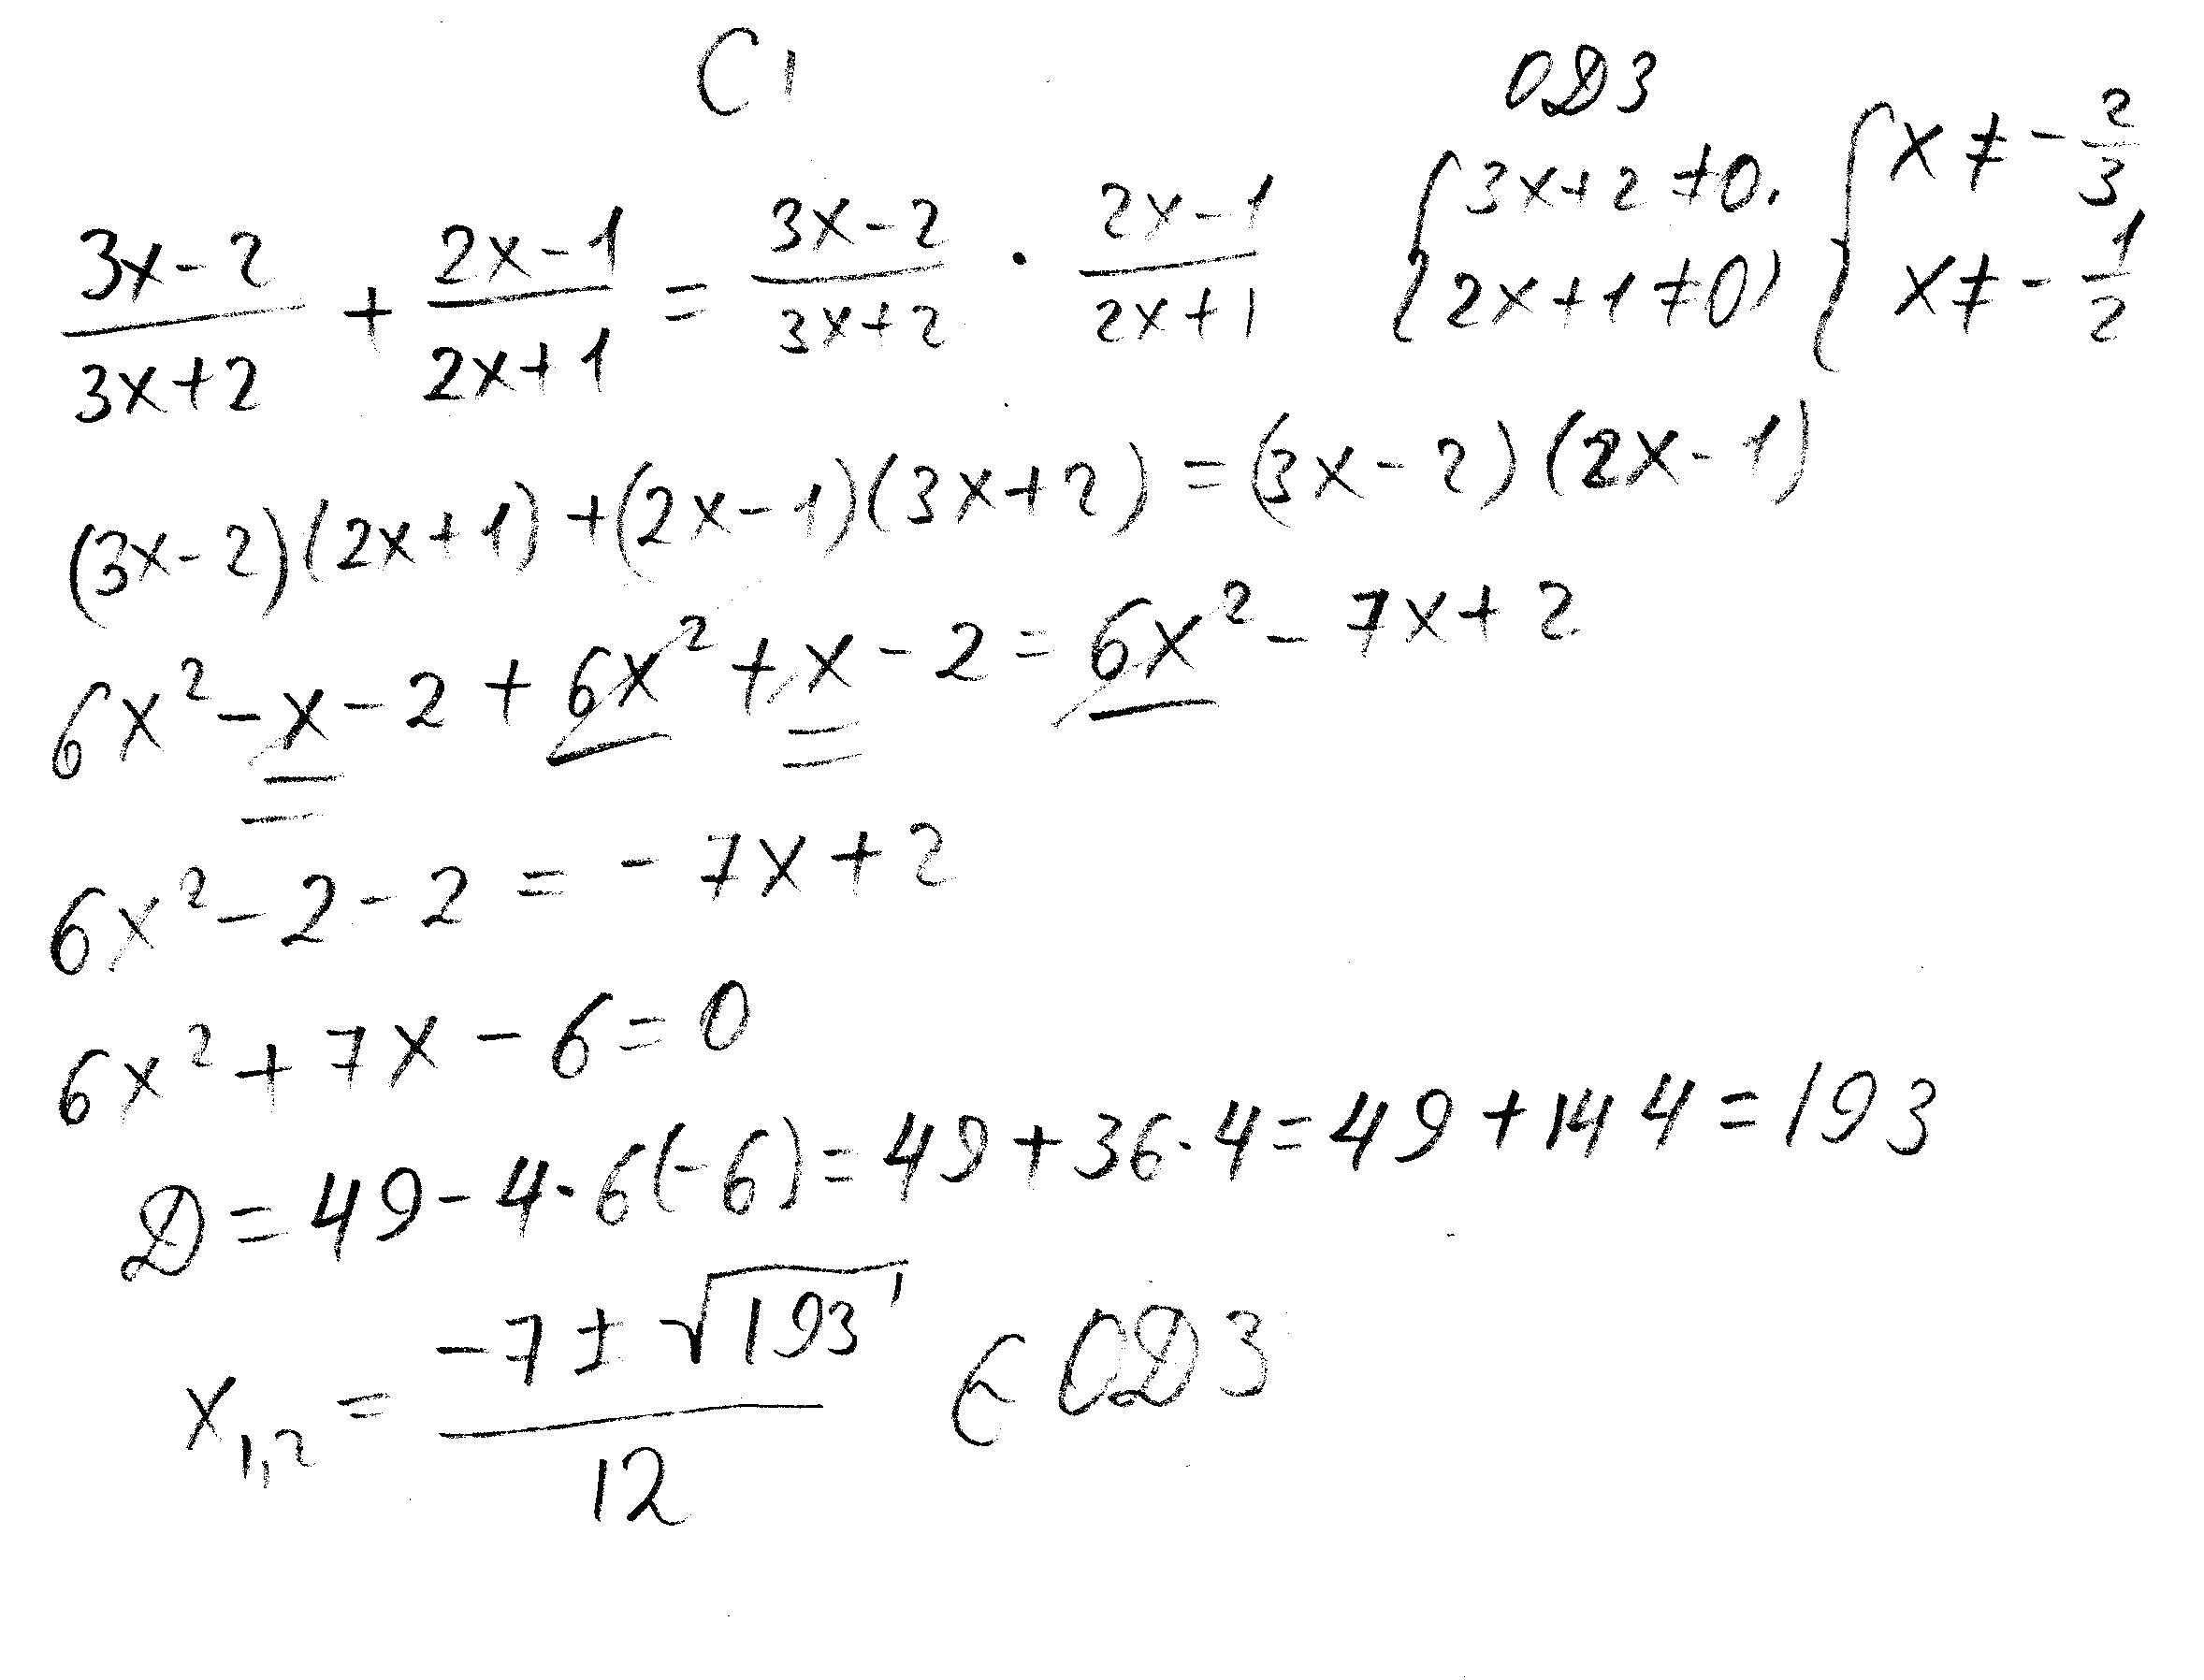 C1
ОДЗ
(3x-2)/(3x+2) + (2x-1)/(2x+1) = (3x-2)/(3x+2) · (2x-1)/(2x+1) { 3x+2 ≠ 0, 2x+1 ≠ 0 ) { x ≠ -2/3 x ≠ -1/2
(3x-2)(2x+1)+(2x-1)(3x+2)=(3x-2)(2x-1)
6x²-x-2+6x²+x-2=6x²-7x+2
6x²-2-2=-7x+2
6x²+7x-6=0
D=49-4·6(-6)=49+36·4=49+144=193
x₁,₂ = (-7±√193)/12 ∈ ОДЗ